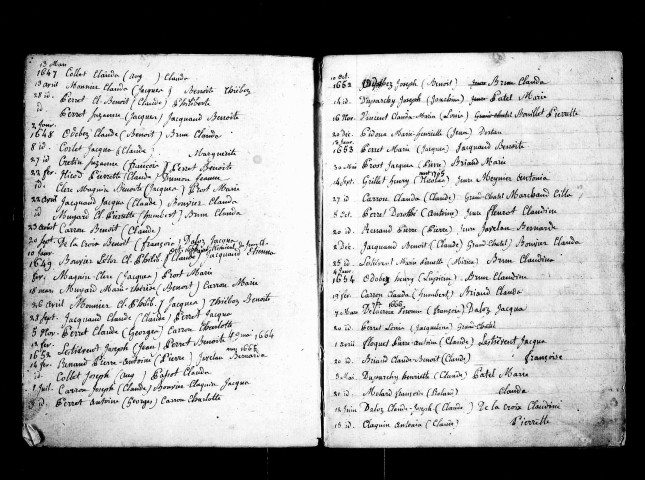 13 Mars
1647 Collet Claude (Aug) Claude
13 avril Monnier Claude (Jacques) Benoite Thiboz
28 id. Perret Cl. Benoit (Claude) Philiberte
id Perret Suzanne (Jacques) Jacquand Benoite
2 Janv.
1648 Odobez Claude (Benoit) Brun Claude
8 id. Coulet Jacques (Claude)
27 id Cretin Suzanne (François) Marguerite
22 fév. Picod Pierrette (Claude) Perret Benoite
id. Clerc Maguin Benoite (Jacques) Prost Marie
22 avril Jacquand Jacques (Claude) Bouvier Claude
id Muyard Cl. Pierrette (humbert) Brun Claude
23 août Carron Benoit (Claude)
20 Sept. De la Croix Benoit (François) Daloz Jacqua
1649 Bouvier Cl. Philib. (Claude) Jacquand Etiennette
fév. Maguin Clerc (Jacques) Prost Marie
18 mars Muyard Marie-Thérèse (Benoit) Carron Marie
26 avril Monnier Cl. Philib. (Jacques) Thiboz Benoite
23 Sept. Jacquand Claude (Claude) Perret Jacqua
5 Nov. Perret Claude (Georges) Carron Charlotte
12 fév.
1652 Lethievent Joseph (Jean) Perret Benoite 4 mai 1664
14 fév. Renaud Pierre-Antoine (Pierre) Javelan Bernarde
id. Collet Joseph (Aug) Papot Claude
1 Juil. Carron Joseph (Claude) Bouvier-Claquin Jacqua
8 id. Perret Antoine (Georges) Carron Charlotte
10 Oct.
1652 Joseph (Benoit) Brun Claude
14 id. Duparchy Joseph (Joachim) Patel Marie
16 Nov. Vincent Claude-Marie (Louis) Grand-Chatel Bouillet Pierrette
20 Déc. Padoua Marie-henriette (Jean) Dortan
1653 Perret Marie (Jacques) Jacquand Benoite
30 Mai Prost Jacques (Pierre) Briand Marie
14 Sept. Grillet henry (Nicolas) Jeure Meynier Antonia
27 id Carron Claude (Claude) Grand-Chatel Marchand Lilla
8 Oct. Perret Dorothé (Antoine) Jean fleuret Claudine
20 id. Renaud Pierre (Pierre) Jeure Javelan Bernarde
2 Déc. Jacquand Benoite (Claude) Grand-Chatel) Bouvier Claude
25 id Lethievent Marie-Pierrette (Mérian) Brun Claudine
1654 Odobez henry (Lupicien) Brun Claudine
19 fév. Carron Claude (humbert) Briand Claude
7 Mars Delacroix Péronne (François) Daloz Jacqua
20 id. Perret Louise (Jacqueline) Grand-Chatel
1 avril floquet Pierre-Antoine (Claude) Lethievent Jacqua
20 id. Briand Claude-Benoit (Claude) Françoise
3 Mai Duparchy henriette (Claude) Patel Marie
31 id. Molard françois (Roland) Claude
12 Juin Daloz Claude-Joseph (Claude) De la croix Claudine
15 id. Claquin Antonia (Claude) Pierrette